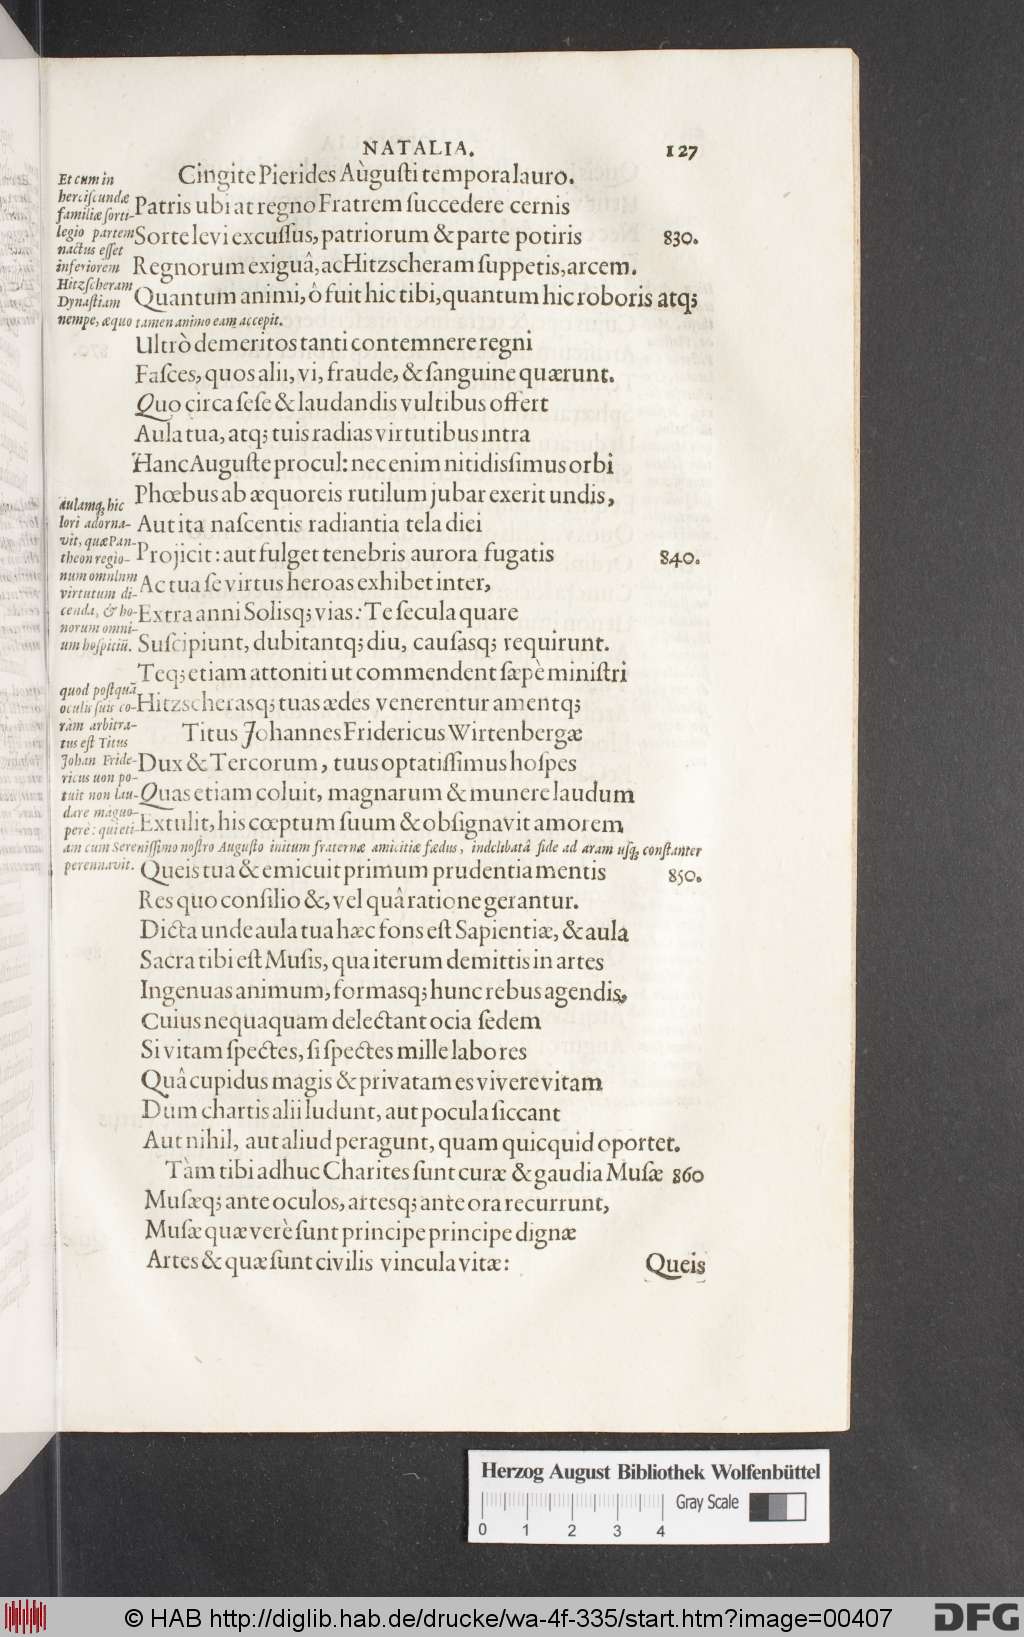 NATALIA. 127
Cingite Pierides Aùgusti tempora lauro.
Et cum in
herciscundæ
familiæ sorti-
legio partem
nactus esset
inferiorem
Hitzscheram
Dynastiam
nempe, æquo tamen animo eam accepit.
Patris ubi at regno Fratrem succedere cernis
Sorte levi excussus, patriorum & parte potiris 830.
Regnorum exiguâ, ac Hitzscheram suppetis, arcem.
Quantum animi, ô fuit hic tibi, quantum hic roboris atq;
Ultrò demeritos tanti contemnere regni
Fasces, quos alii, vi, fraude, & sanguine quærunt.
Quo circa sese & laudandis vultibus offert
Aula tua, atq; tuis radias virtutibus intra
Hanc Auguste procul: nec enim nitidissimus orbi
Phœbus ab æquoreis rutilum jubar exerit undis,
aulamq; hic
lori adorna-
vit, quæ Pan-
theon regio-
num omnium
virtutum di-
cenda, & ho-
norum omni-
um hospitiũ.
Aut ita nascentis radiantia tela diei
Projicit: aut fulget tenebris aurora fugatis 840.
Ac tua se virtus heroas exhibet inter,
Extra anni Solisq; vias: Te secula quare
Suscipiunt, dubitantq; diu, causasq; requirunt.
Teq; etiam attoniti ut commendent sæpè ministri
quod postquã
oculis suis co-
ràm arbitra-
tus est Titus
Johan Fride-
ricus uon po-
tuit non lau-
dare maguo-
perè: quieti-
am cum Serenissimo nostro Augusto initum fraternæ amicitiæ fœdus, indelibatâ fide ad aram usq; constanter
perennavit.
Hitzscherasq; tuas ædes venerentur amentq;
Titus Johannes Fridericus Wirtenbergæ
Dux & Tercorum, tuus optatissimus hospes
Quas etiam coluit, magnarum & munere laudum
Extulit, his cœptum suum & obsignavit amorem
Queis tua & emicuit primum prudentia mentis 850.
Res quo consilio &, vel quâ ratione gerantur.
Dicta unde aula tua hæc fons est Sapientiæ, & aula
Sacra tibi est Musis, qua iterum demittis in artes
Ingenuas animum, formasq; hunc rebus agendis,
Cuius nequaquam delectant ocia sedem
Si vitam spectes, si spectes mille labores
Quâ cupidus magis & privatam es vivere vitam
Dum chartis alii ludunt, aut pocula siccant
Aut nihil, aut aliud peragunt, quam quicquid oportet.
Tàm tibi adhuc Charites sunt curæ & gaudia Musæ 860
Musæq; ante oculos, artesq; ante ora recurrunt,
Musæ quæ verè sunt principe principe dignæ
Artes & quæ sunt civilis vincula vitæ: Queis
Herzog August Bibliothek Wolfenbüttel
Gray Scale
0 1 2 3 4
© HAB http://diglib.hab.de/drucke/wa-4f-335/start.htm?image=00407 DFG